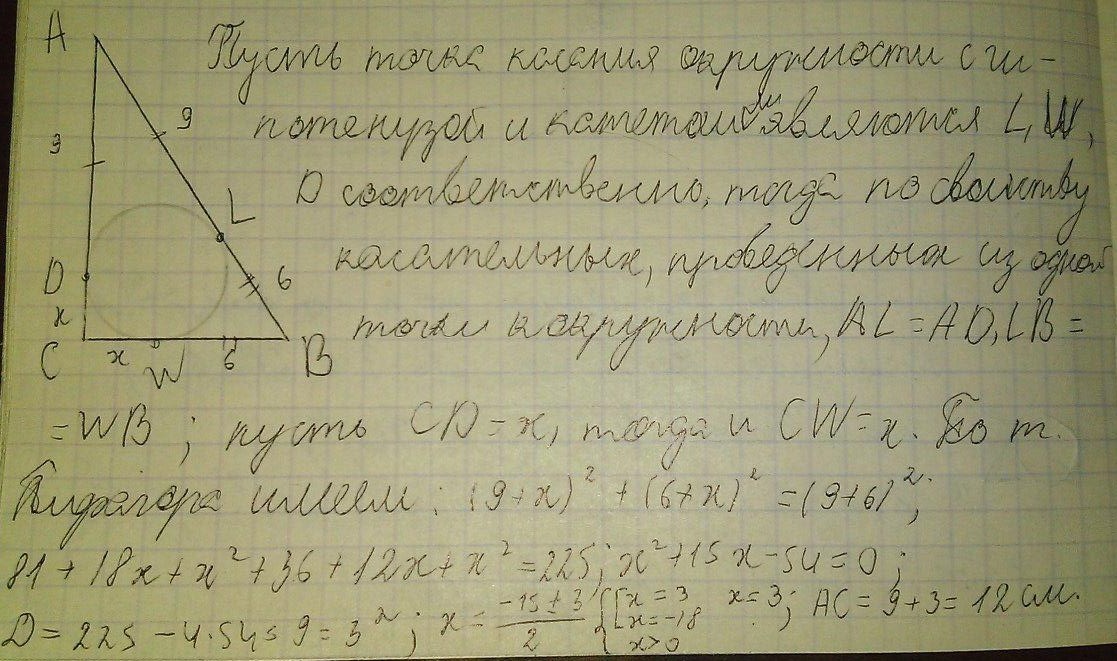 A
Пусть точка касания окружности с ги-
9
потенузой и катетами являются L, W,
9
D соответственно, тогда по свойству
L
касательных, проведенных из одной
D
6
x
точки к окружности, AL = AD, LB =
C
x
W
6
B
= WB ; пусть CD = x, тогда и CW = x. По т.
Пифагора имеем : (9+x)² + (6+x)² = (9+6)²;
81 + 18x + x² + 36 + 12x + x² = 225; x² + 15x - 54 = 0;
D = 225 - 4·54 = 9 = 3²; x = (-15 ± 3)/2 {[x = 3 x = -18 x > 0 x = 3; AC = 9 + 3 = 12 см.